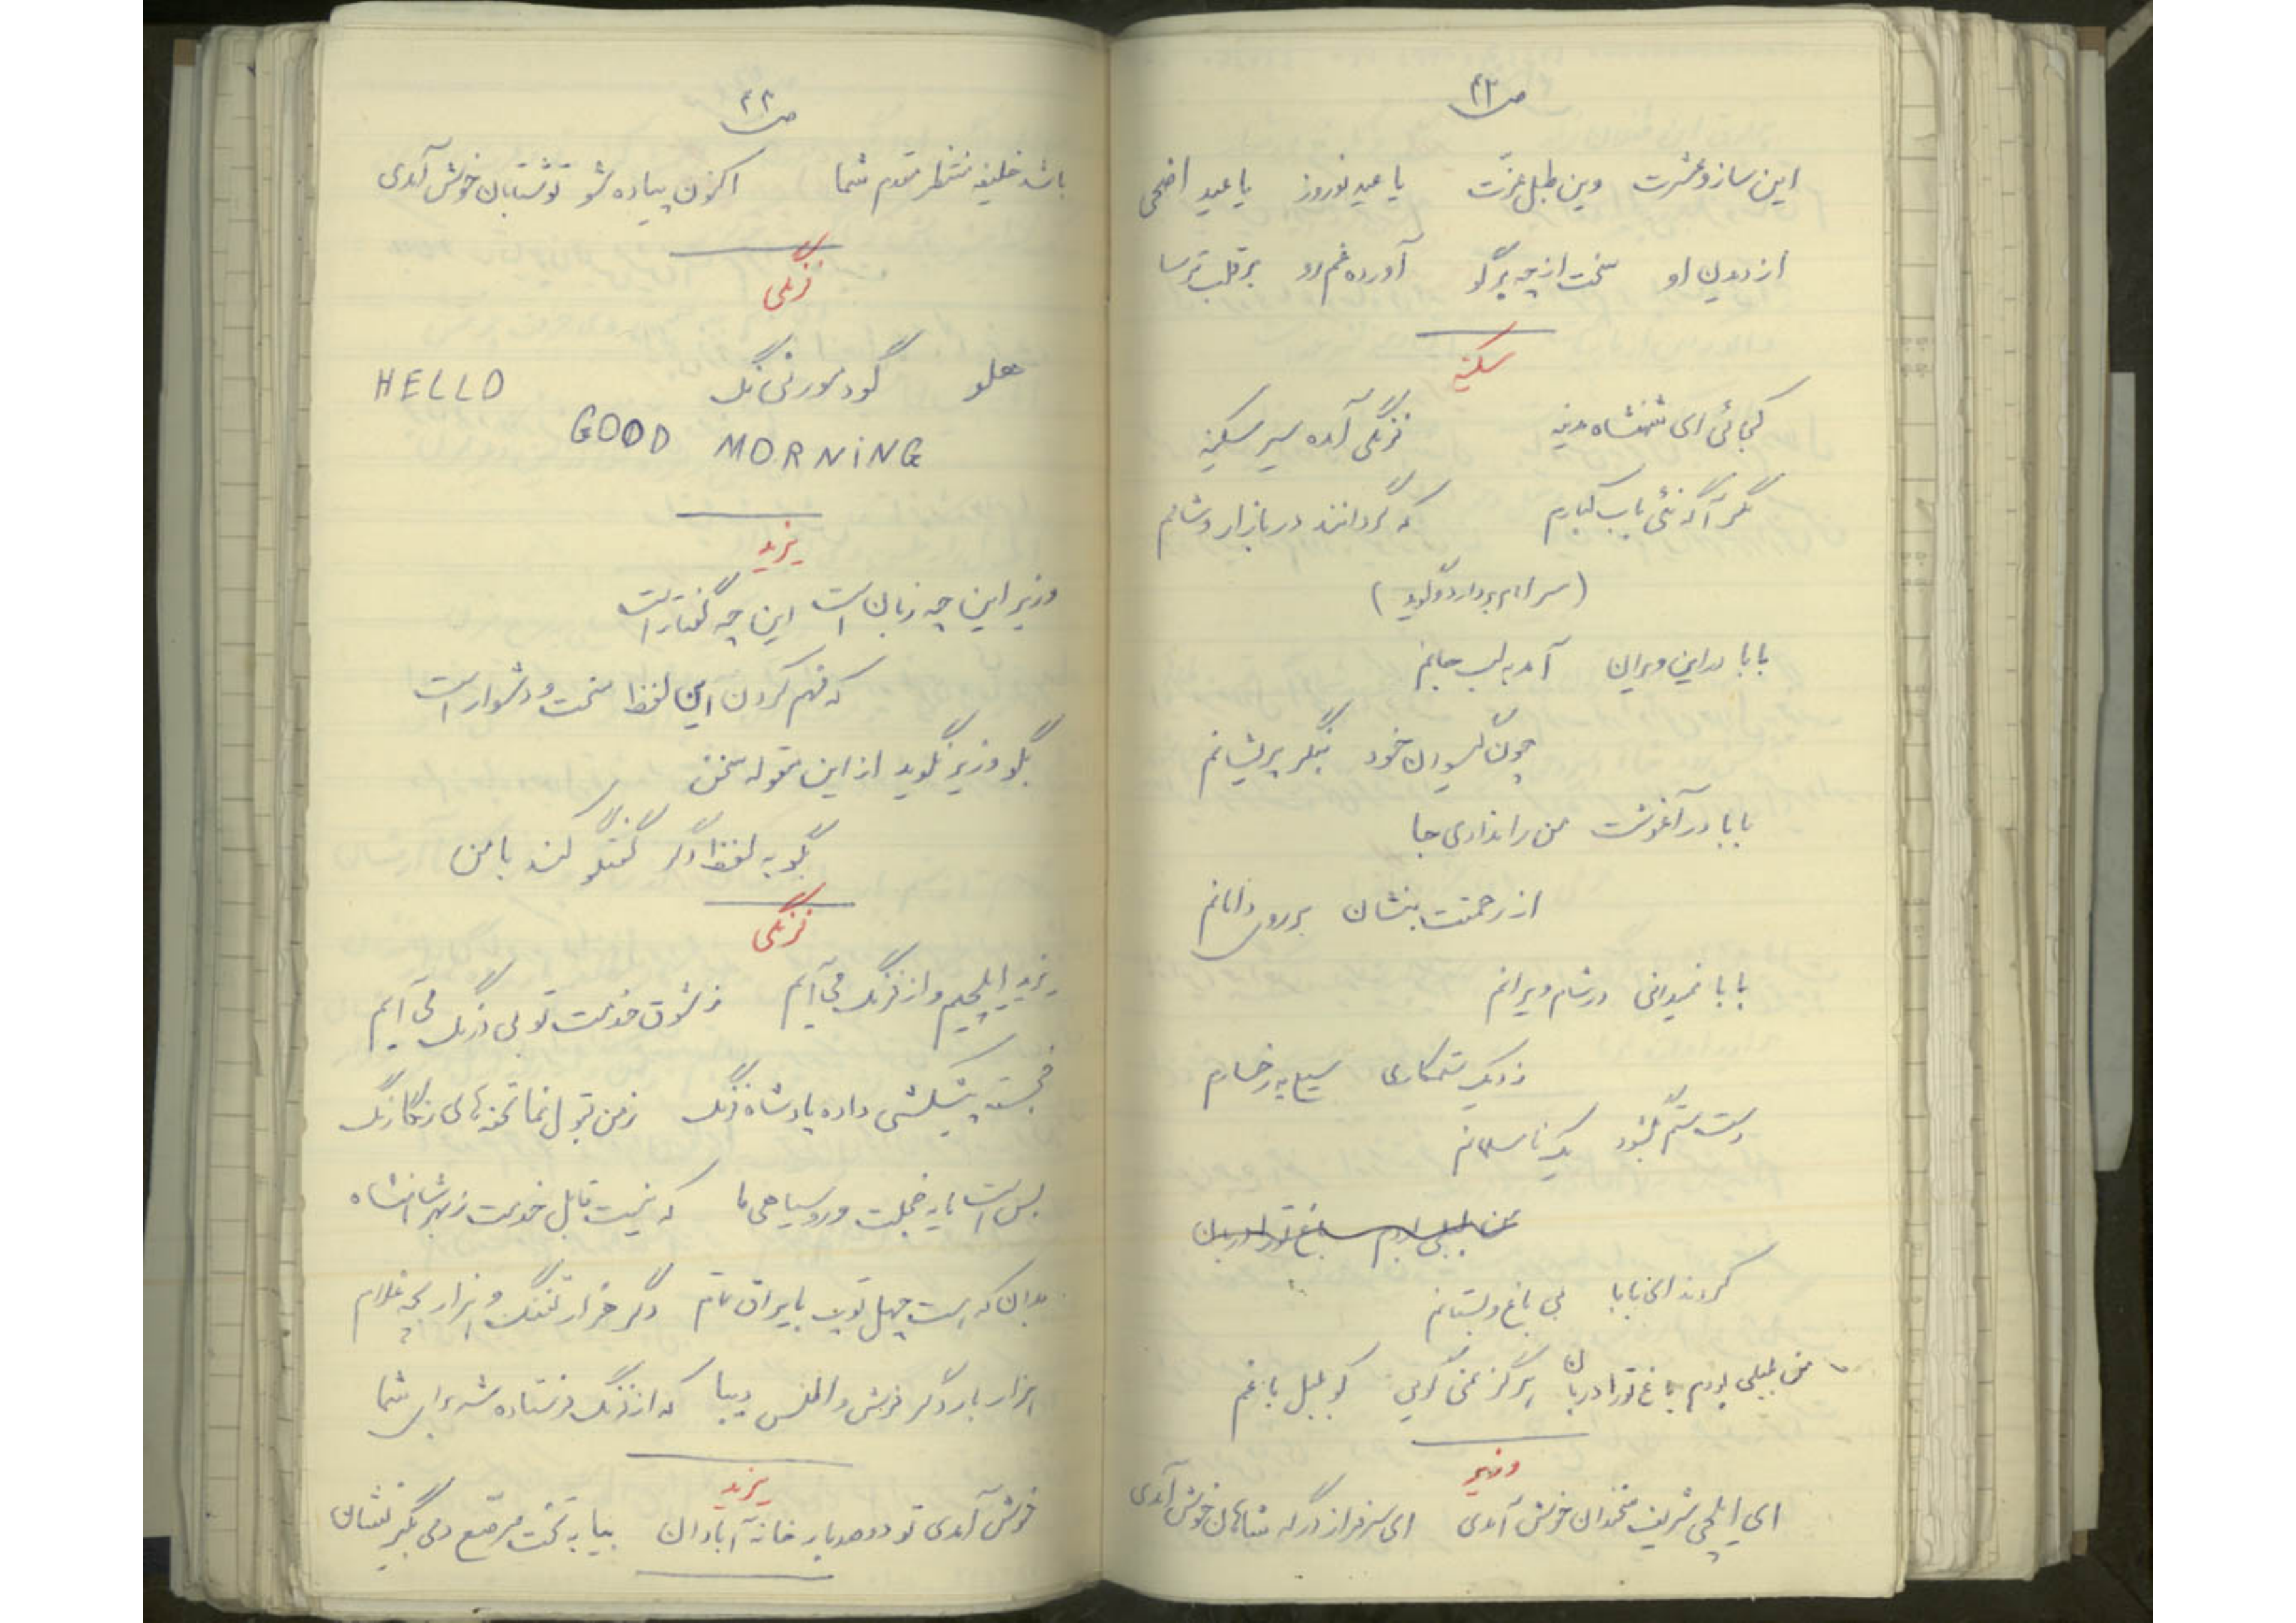 ص ۴۳
این ساز و عشرت وین طبل عزّت یا عید نوروز یا عید اضحی
از دیدن او سخت از چه برگو آورده غم رو بر قلب ترسا
سکینه
کجائی ای شهنشاه مدینه فرنگی آمده سیر سکینه
مگر آگه نئی باب کبارم که گردانند در بازار و شامم
(سر امام بردارد و گوید)
بابا در این ویران آمد به لب جانم
چون گیسوان خود بنگر پریشانم
بابا در آغوشت من را نداری جا
از رحمتت بنشان بر روی دامانم
بابا نمیدانی در شام ویرانم
زد یک ستمکاری سیلی به رخسارم
دست ستم بگشود یک نامسلمانم
من بلبلی بودم باغ تو را دربان
کردند ای بابا بی باغ و بستانم
من بلبلی بودم باغ تو را دربان هرگز نمی گویی کو بلبل باغم
وزیر
ای ایلچی شریف سخندان خوش آمدی ای سرفراز درگه شاهان خوش آمدی
ص ۴۴
باشد خلیفه منتظر مقدم شما اکنون پیاده شو تو شتابان خوش آمدی
فرنگی
هلو گود مورنی نگ HELLO
GOOD MORNING
یزید
وزیر این چه زبان است این چه گفتار است
که فهم کردن این لفظ سخت و دشوار است
بگو وزیر نگوید از این مقوله سخن
بگو به لفظ دگر گفتگو کند با من
فرنگی
یزید ایلچیم و از فرنگ می آیم ز شوق خدمت تو بی درنگ می آیم
خجسته پیشکشی داده پادشاه فرنگ ز من قبول نما تحفه های رنگارنگ
بس است مایه خجلت و روسیاهی ما که نیست قابل خدمت ز بهر شاهنشاه
بدان که هست چهل توپ با یراق تمام دگر هزار تفنگ و هزار بچه غلام
هزار بار دگر فرش و اطلس دیبا که از فرنگ فرستاده شد برای شما
یزید
خوش آمدی تو دو صد بار خانه آبادان بیا به تخت مرصع دمی بگیر نشان